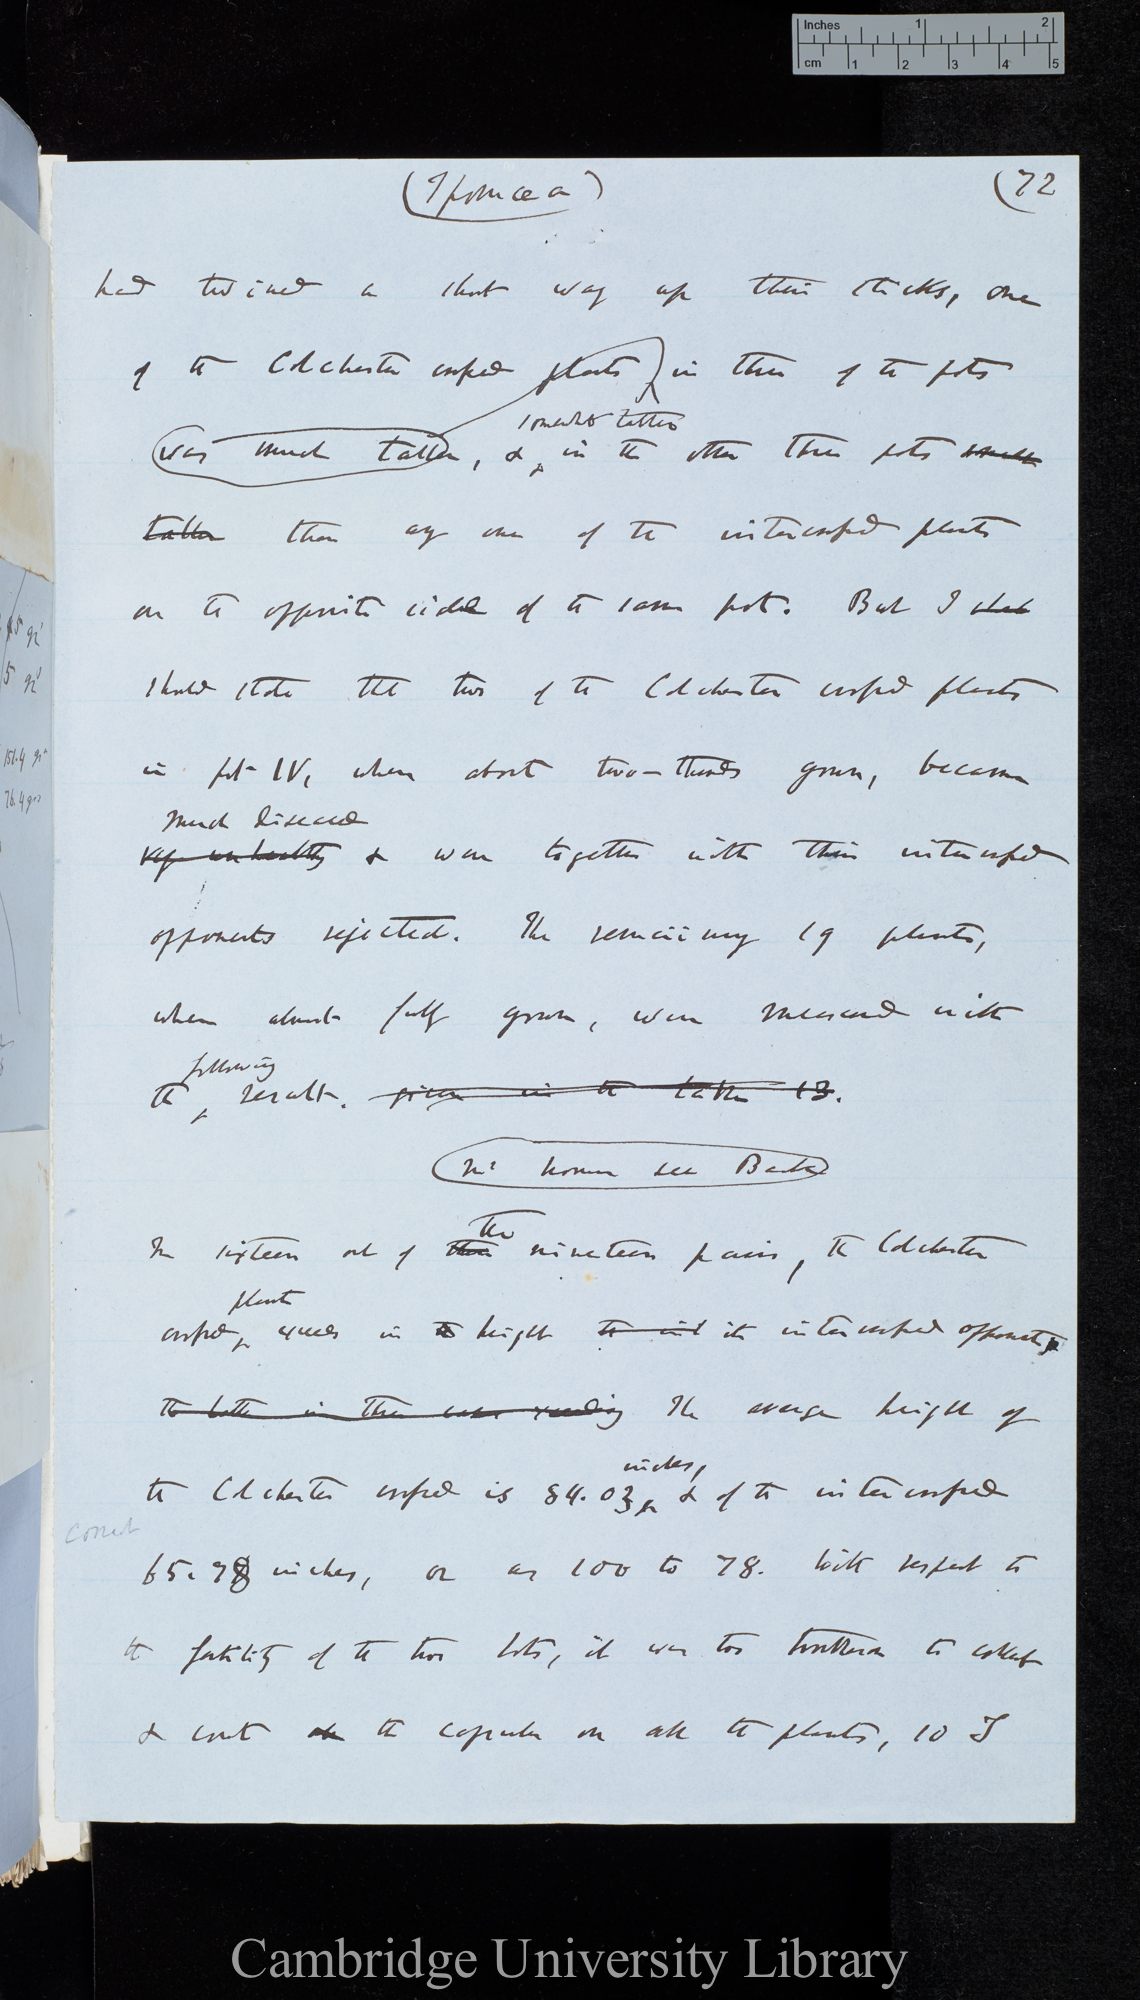 Inches 1 2
cm 1 2 3 4 5
(Ipomœa)
(72
had twined a short way up their sticks, one
of the Colchester crossed plants in three of the pots
somewhat taller
was much taller, & in the other three pots
taller than any one of the intercrossed plants
on the opposite side of the same pot. But I
should state that two of the Colchester crossed plants
in pot IV, when about two-thirds grown, became
much diseased
very unhealthy & were together with their intercrossed
opponents rejected. The remaining 19 plants,
when almost fully grown, were measured with
following
the result. given in the table 13.
Mr Norman see Back
In sixteen out of these nineteen pairs, the Colchester
the
plant
crossed, exceeds in height its intercrossed opponent
The average height of
inches,
the Colchester crossed is 84.03 & of the intercrossed
correct
65.78 inches, or as 100 to 78. With respect to
the fertility of the two lots, it was too troublesome to collect
& count the capsules on all the plants, so I
15 gr
5 gr
151.4 grs
76.4 grs
Cambridge University Library